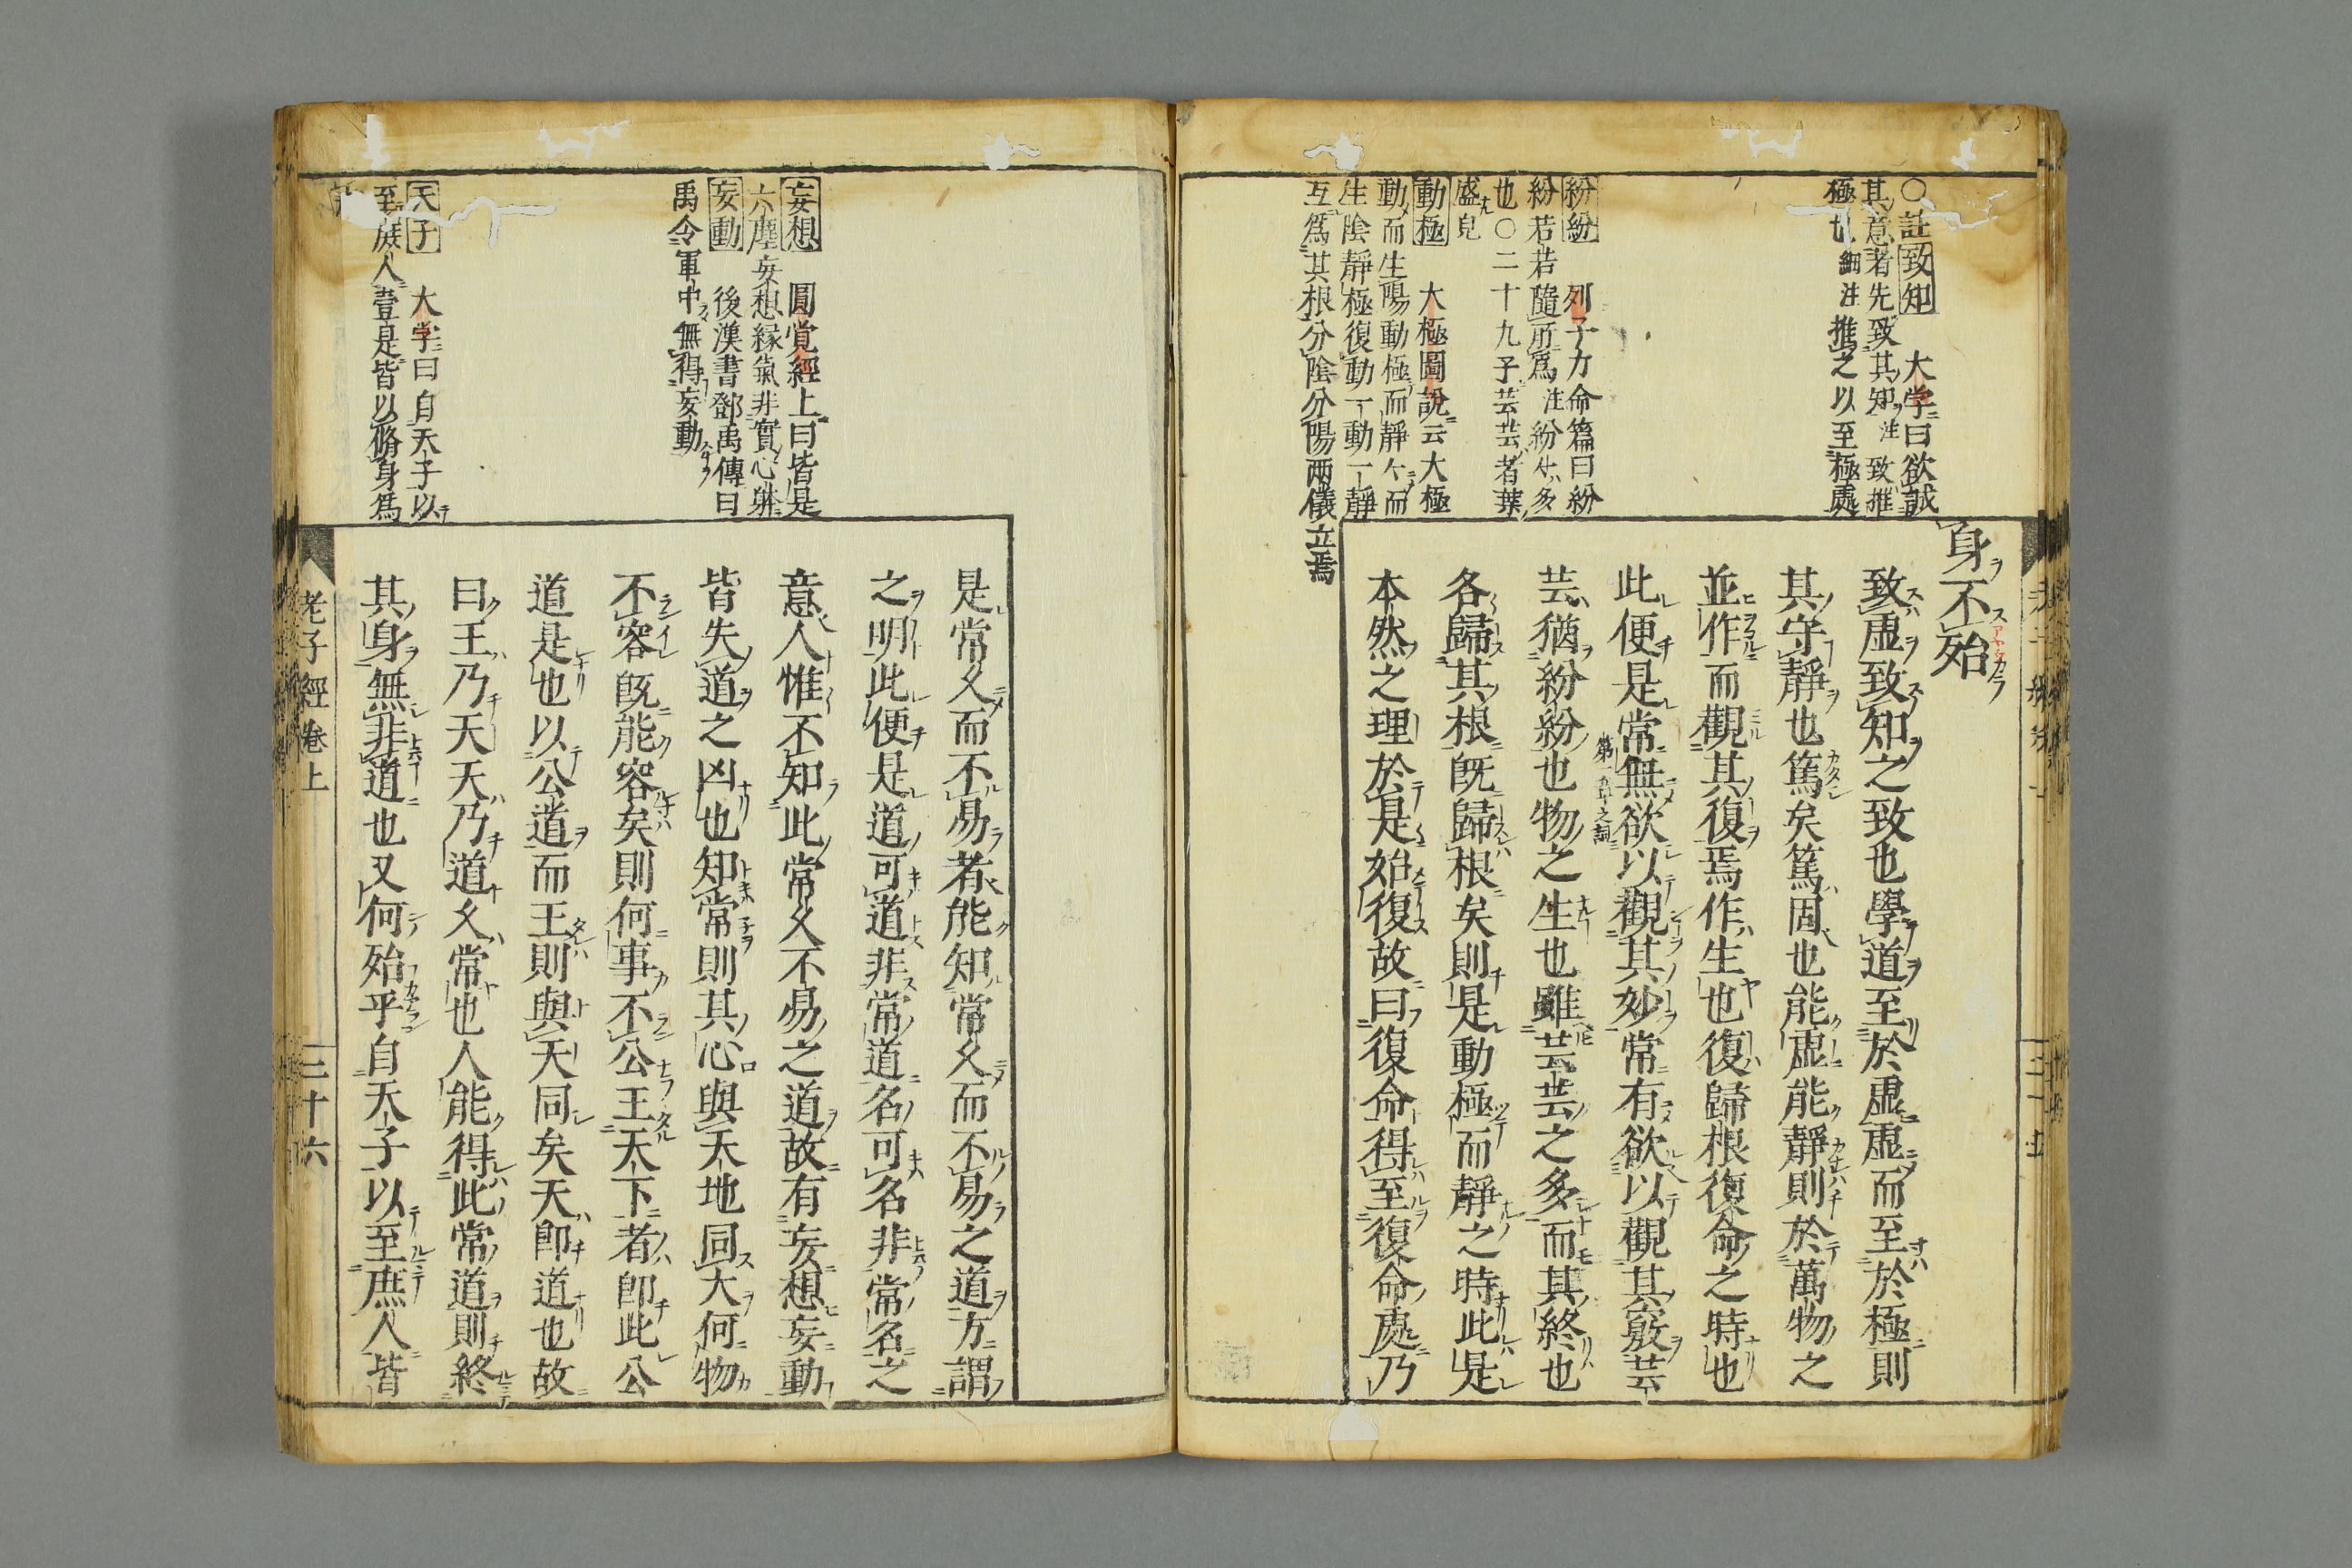 ○註致知 大学曰欲誠
其意者先致其知注 致推
極也細注 推之以至極處
紛紛 列子力命篇曰紛
紛若若隨所爲注 紛々多
也○二十九子芸芸者葉
盛皃
動極 大極圖說云大極
動而生陽動極而靜々而
生陰靜極復動一動一靜
互爲其根分陰分陽兩儀立焉
身不殆
致虛致知之致也學道至於虛虛而至於極則
其守靜也篤矣篤固也能虛能靜則於萬物之
並作而觀其復焉作生也復歸根復命之時也
此便是常無欲以觀其妙常有欲以觀其竅芸
芸猶紛紛也物之生也雖芸芸之多而其終也
各歸其根旣歸根矣則是動極而靜之時此是
本然之理於是始復故曰復命得至復命處乃
妄想 圓覚經上曰皆是
六塵妄想縁氣非實心躰
妄動 後漢書鄧禹傳曰
禹令軍中無得妄動
天子 大学曰自天子以
至庶人壹是皆以脩身爲
是常久而不易者能知常久而不易之道方謂
之明此便是道可道非常道名可名非常名之
意人惟不知此常久不易之道故有妄想妄動
皆失道之凶也知常則其心與天地同大何物
不容旣能容矣則何事不公王天下者卽此公
道是也以公道而王則與天同矣天卽道也故
曰王乃天天乃道久常也人能得此常道則終
其身無非道也又何殆乎自天子以至庶人皆
老子經卷上 三十六